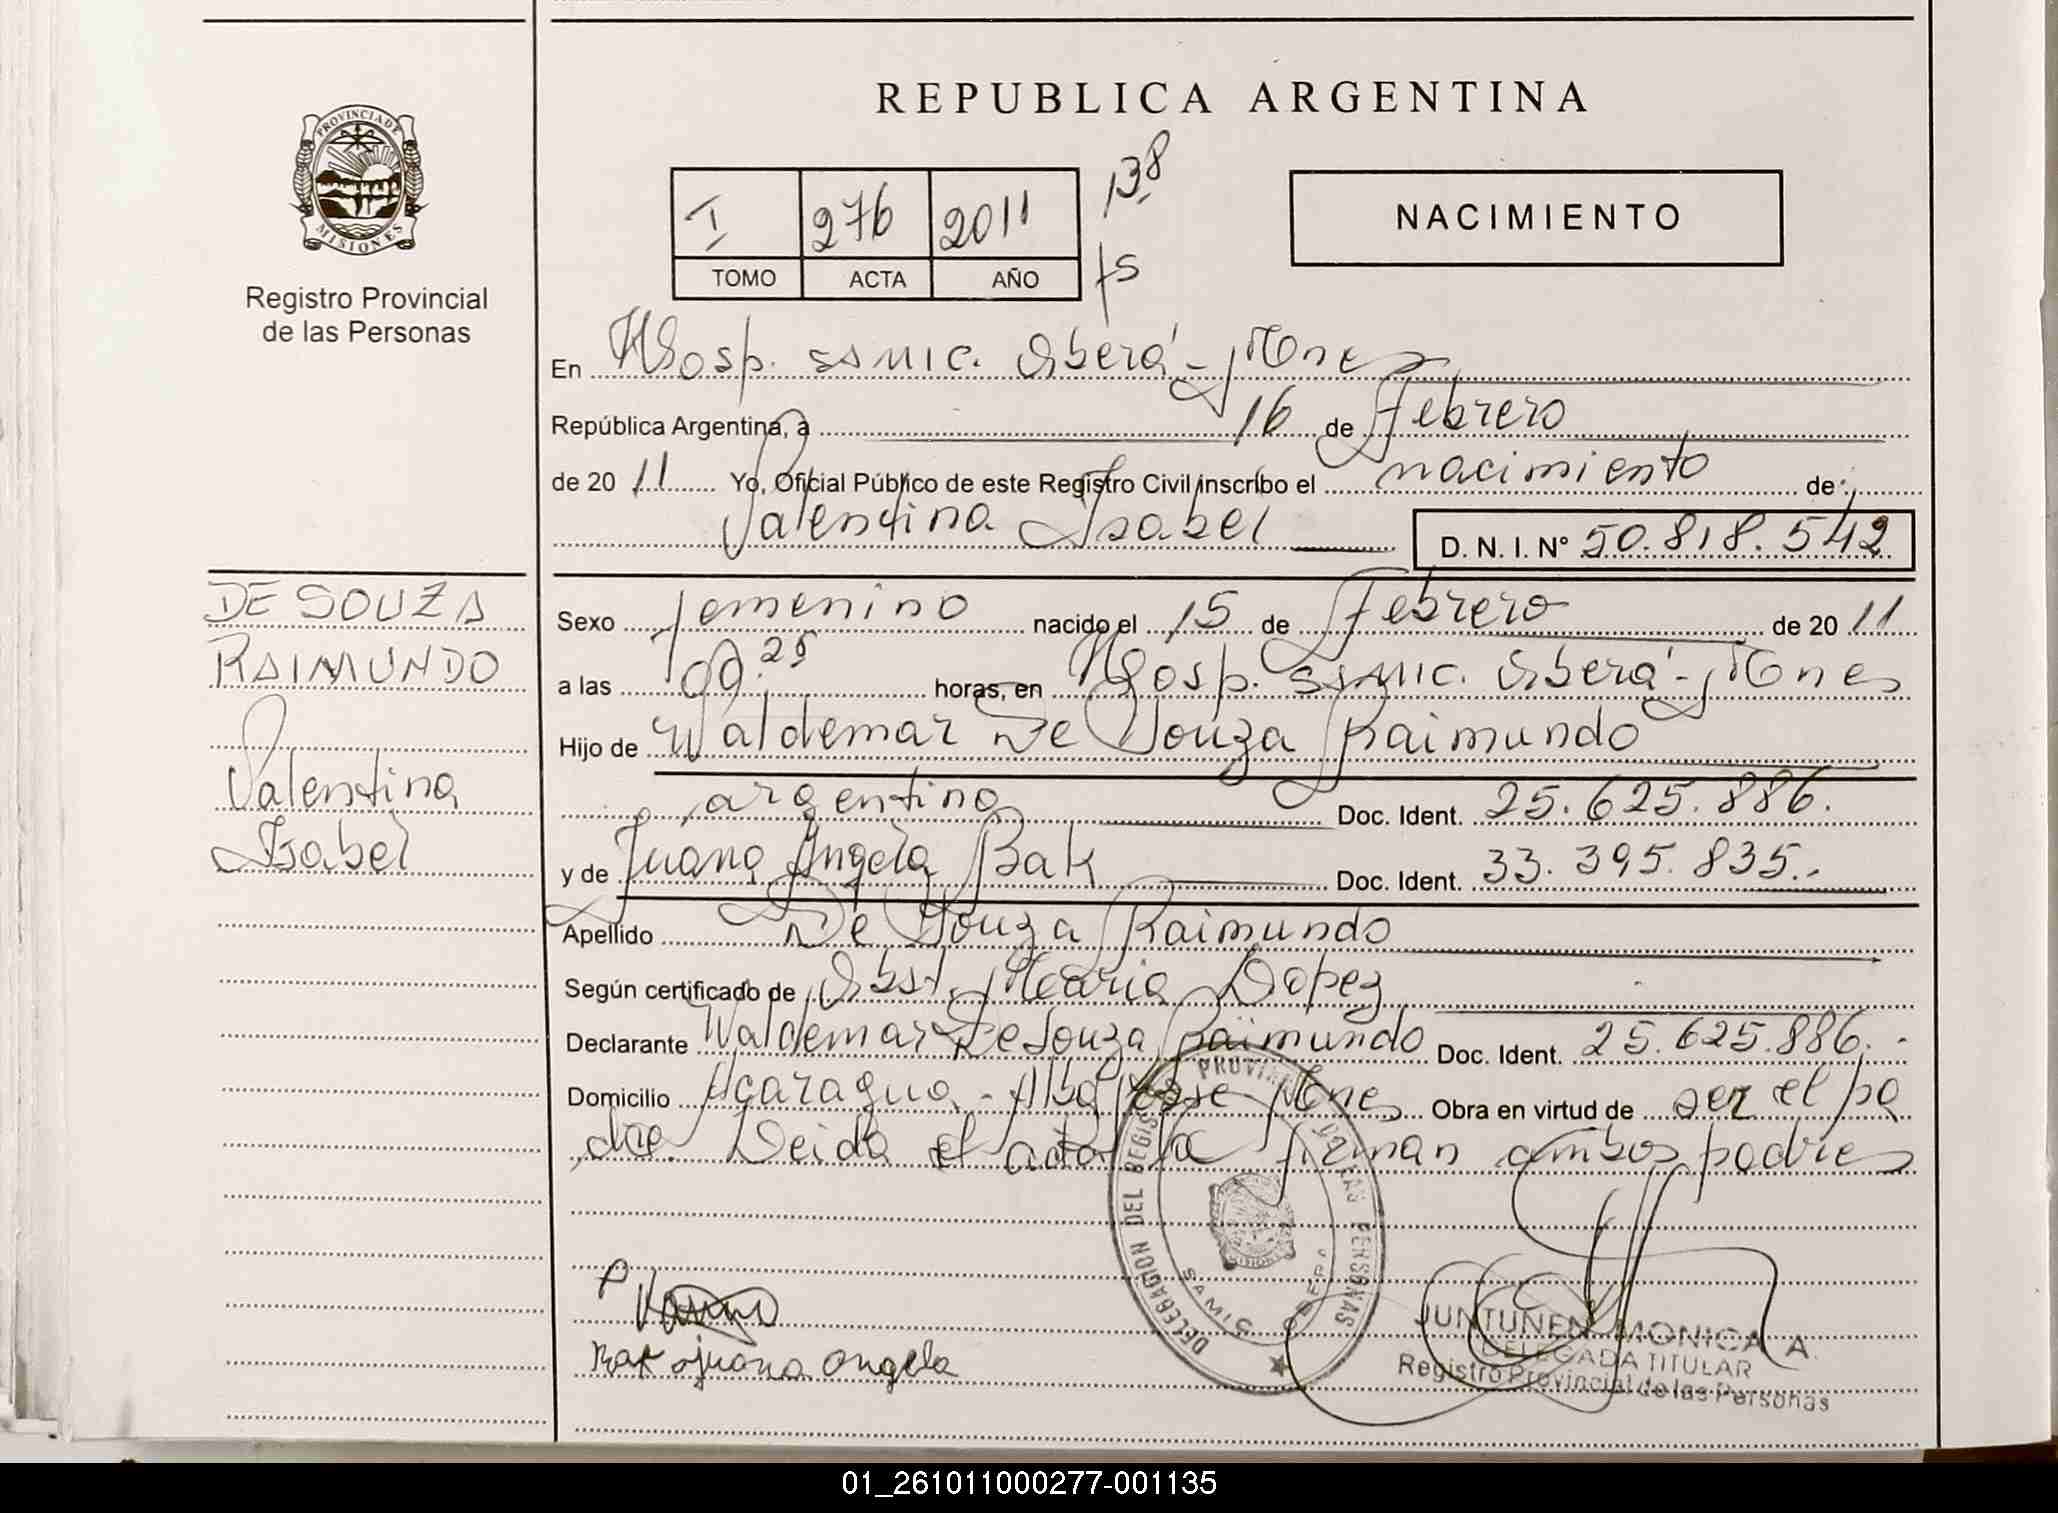 REPUBLICA ARGENTINA
PROVINCIA DE
MISIONES
Registro Provincial
de las Personas
I 276 2011
TOMO ACTA AÑO
138
fs
NACIMIENTO
En Hosp. SAMIC. Oberá - Mnes
República Argentina, a 16 de Febrero
de 20 11 Yo, Oficial Público de este Registro Civil inscribo el nacimiento de:
Valentina Isabel D. N. I. N° 50.818.542
DE SOUZA
RAIMUNDO
Valentina
Isabel
Sexo femenino nacido el 15 de Febrero de 20 11
a las 09.25 horas, en Hosp. SAMIC. Oberá - Mnes
Hijo de Waldemar De Souza Raimundo
argentino Doc. Ident. 25.625.886.
y de Juana Angela Bak Doc. Ident. 33.395.835.-
Apellido De Souza Raimundo
Según certificado de Obst. Maria Lopez
Declarante Waldemar De Souza Raimundo Doc. Ident. 25.625.886.-
Domicilio Acaragua - Alba Posse Mnes Obra en virtud de ser el pa
dre. Leida el acta la firman ambos padres
DELEGACION DEL REGISTRO PROVINCIAL DE LAS PERSONAS
SAMIC OBERA
MISIONES
Bak juana angela
JUNTUNEN MONICA A.
DELEGADA TITULAR
Registro Provincial de las Personas
01_261011000277-001135